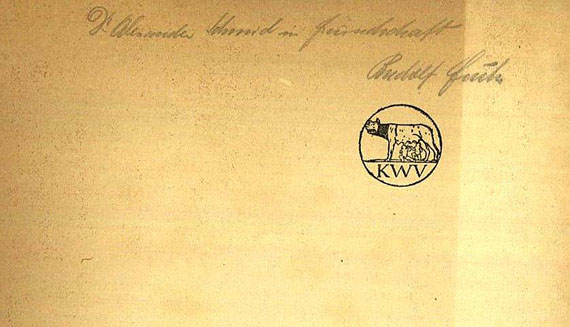 Dr. Alexander Schmid in Freundschaft
Rudolf
KWV